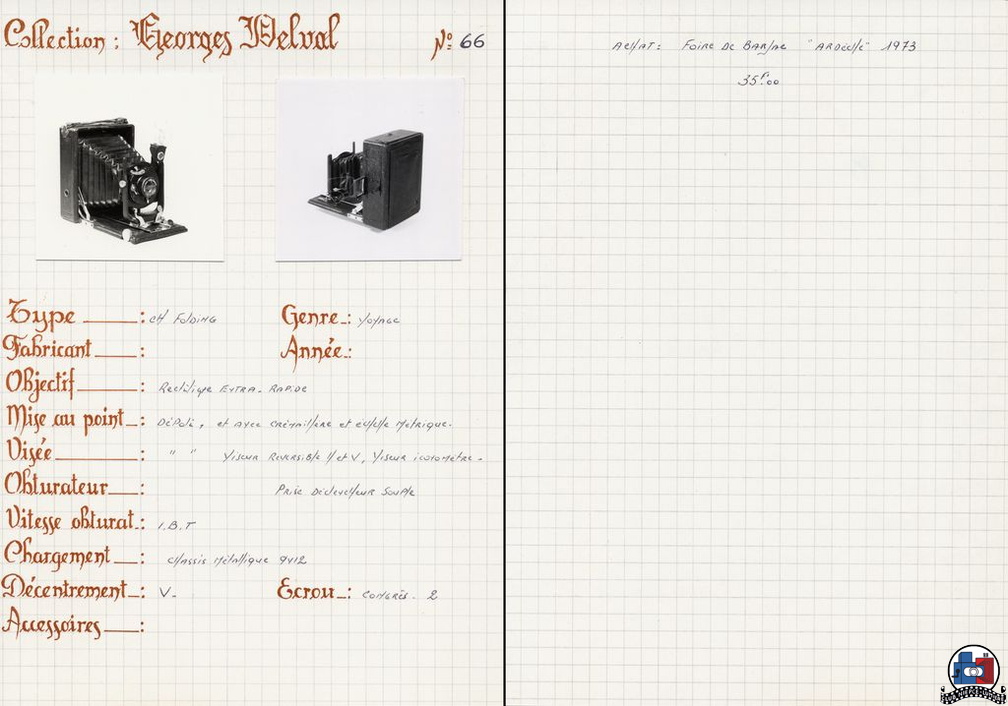 Collection : Georges Delval Nº 66
Type : CH Folding Genre : Voyage
Fabricant :
Année :
Objectif : Rectilique Extra-Rapide
Mise au point : Dépoli, et avec crémaillère et échelle métrique.
Visée : " " Viseur Reversible H et V, Viseur iconomètre-
Obturateur : Prise Déclencheur Souple
Vitesse obturat. : I.B.T
Chargement : châssis métallique 9x12
Décentrement : V- Ecrou : Congrès. 2
Accessoires :
Achat : Foire de Barjac "Ardèche" 1973
35F00